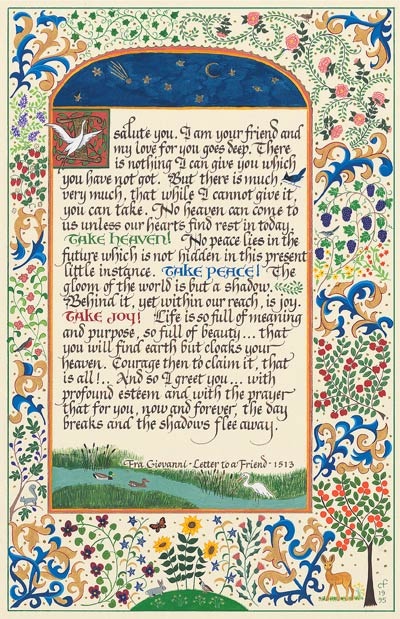 I salute you. I am your friend and
my love for you goes deep. There
is nothing I can give you which
you have not got. But there is much,
very much, that while I cannot give it,
you can take. No heaven can come to
us unless our hearts find rest in today.
TAKE HEAVEN! No peace lies in the
future which is not hidden in this present
little instance. TAKE PEACE! The
gloom of the world is but a shadow.
Behind it, yet within our reach, is joy.
TAKE JOY! Life is so full of meaning
and purpose, so full of beauty... that
you will find earth but cloaks your
heaven. Courage then to claim it, that
is all!.. And so I greet you... with
profound esteem and with the prayer
that for you, now and forever, the day
breaks and the shadows flee away.
Fra Giovanni · Letter to a Friend · 1513
CF
19
95